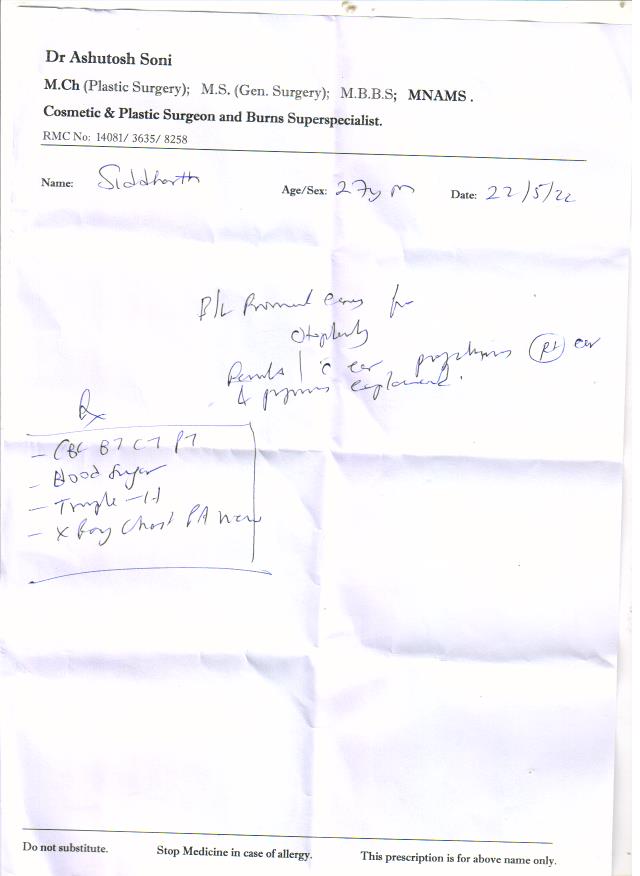 Dr Ashutosh Soni
M.Ch (Plastic Surgery); M.S. (Gen. Surgery); M.B.B.S; MNAMS .
Cosmetic & Plastic Surgeon and Burns Superspecialist.
RMC No: 14081/ 3635/ 8258
Name: Siddharth Age/Sex: 27y m Date: 22/5/22
B/L Prominent ears for
Otoplasty
Results ear Rt ear
explained.
Rx
- CBC BT CT PT
- Blood Sugar
- Triple -H
- X Ray Chest PA view
Do not substitute. Stop Medicine in case of allergy. This prescription is for above name only.